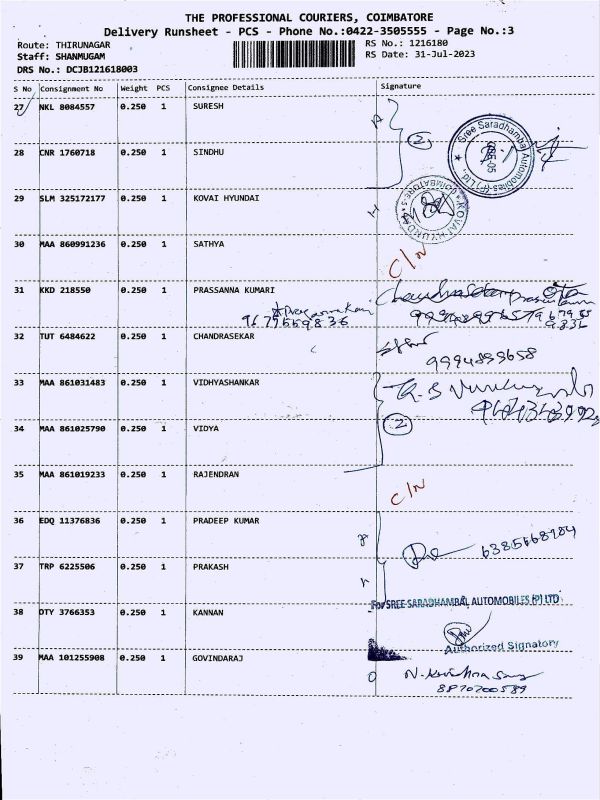 THE PROFESSIONAL COURIERS, COIMBATORE
Delivery Runsheet - PCS - Phone No.:0422-3505555 - Page No.:3
Route: THIRUNAGAR
RS No.: 1216180
Staff: SHANMUGAM
RS Date: 31-Jul-2023
DRS No.: DCJB121618003
S No Consignment No Weight PCS Consignee Details Signature
27 NKL 8084557 0.250 1 SURESH
2
Sree Saradhambal Automobiles (P) Ltd.,
28 CNR 1760718 0.250 1 SINDHU
29 SLM 325172177 0.250 1 KOVAI HYUNDAI
KOVAI HYUNDAI
COIMBATORE
30 MAA 860991236 0.250 1 SATHYA
C/N
31 KKD 218550 0.250 1 PRASSANNA KUMARI
Chandrasekar
9677559836
32 TUT 6484622 0.250 1 CHANDRASEKAR
9994899658
33 MAA 861031483 0.250 1 VIDHYASHANKAR
34 MAA 861025790 0.250 1 VIDYA
2
35 MAA 861019233 0.250 1 RAJENDRAN
C/N
36 EDQ 11376836 0.250 1 PRADEEP KUMAR
37 TRP 6225506 0.250 1 PRAKASH
For SREE SARADHAMBAL AUTOMOBILES (P) LTD
38 DTY 3766353 0.250 1 KANNAN
Authorized Signatory
39 MAA 101255908 0.250 1 GOVINDARAJ
8870700589